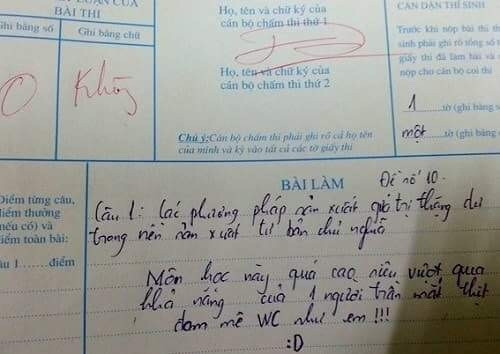 LUẬN CỦA
BÀI THI
Ghi bằng số
Ghi bằng chữ
0
Không
Họ, tên và chữ ký của
cán bộ chấm thi thứ 1
Họ, tên và chữ ký của
cán bộ chấm thi thứ 2
Chú ý: Cán bộ chấm thi phải ghi rõ cả họ tên
của mình và ký vào tất cả các tờ giấy thi
CĂN DẶN THÍ SINH
Trước khi nộp bài thi th
sinh phải ghi rõ tổng số t
giấy thi đã làm bài và
nộp cho cán bộ coi thi
1 tờ (ghi bằng
một tờ (ghi bằng
BÀI LÀM
Đề số 10.
Điểm từng câu,
điểm thưởng
nếu có) và
điểm toàn bài:
âu 1 điểm
Câu 1: Các phương pháp sản xuất giá trị thặng dư
trong nền sản xuất tư bản chủ nghĩa
Môn học này quá cao siêu vượt qua
khả năng của 1 người trần mắt thịt
đam mê WC như em !!!
:D